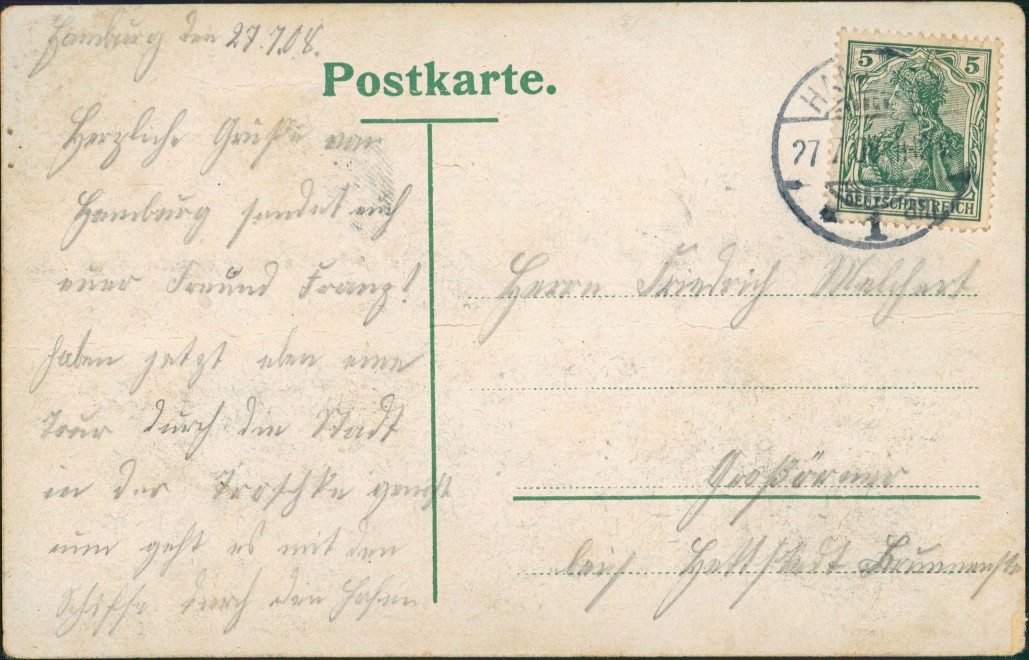 Hamburg den 27.7.08.
Postkarte.
Herzliche Grüße von
Hamburg sendet euch
euer Freund Franz!
haben jetzt eben eine
Tour durch die Stadt
in der Troschke gemacht
nun geht es mit den
Schiffe durch den Hafen
5 5
DEUTSCHES REICH
HA
27.7.08
1
Herrn Friedrich Melchert
Großörner
bei Hettstedt Brunnenstr